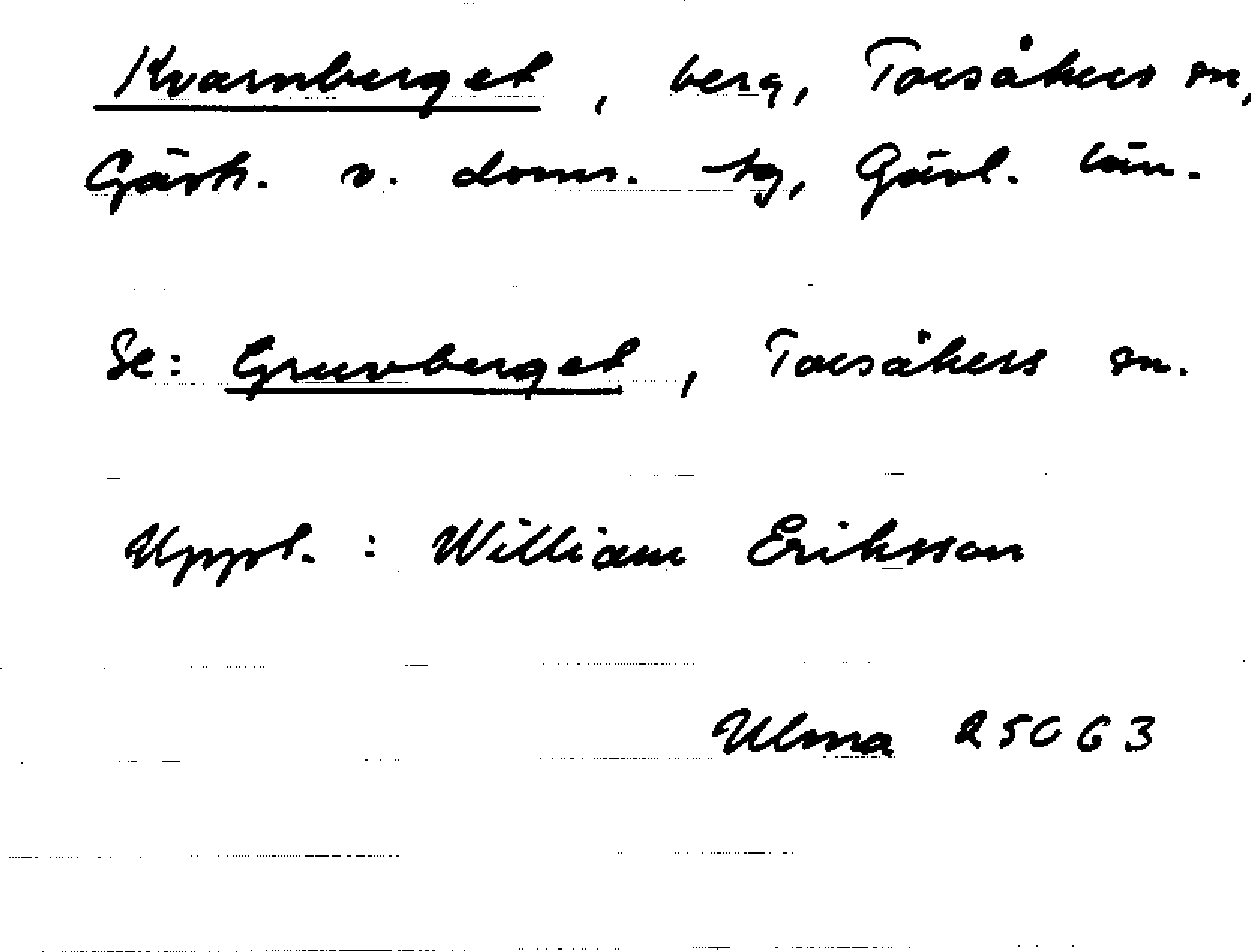 Kvarnberget, berg, Torsåkers sn,
Gästr. v. doms. tg, Gävl. län.
Se: Gruvberget, Torsåkers sn.
Uppt. : William Eriksson
Ulma 25063